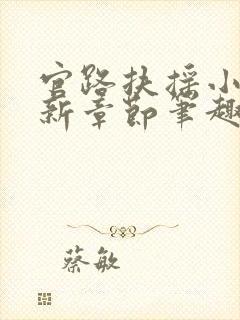 官路扶摇小
新章节笔趣
蔡敏